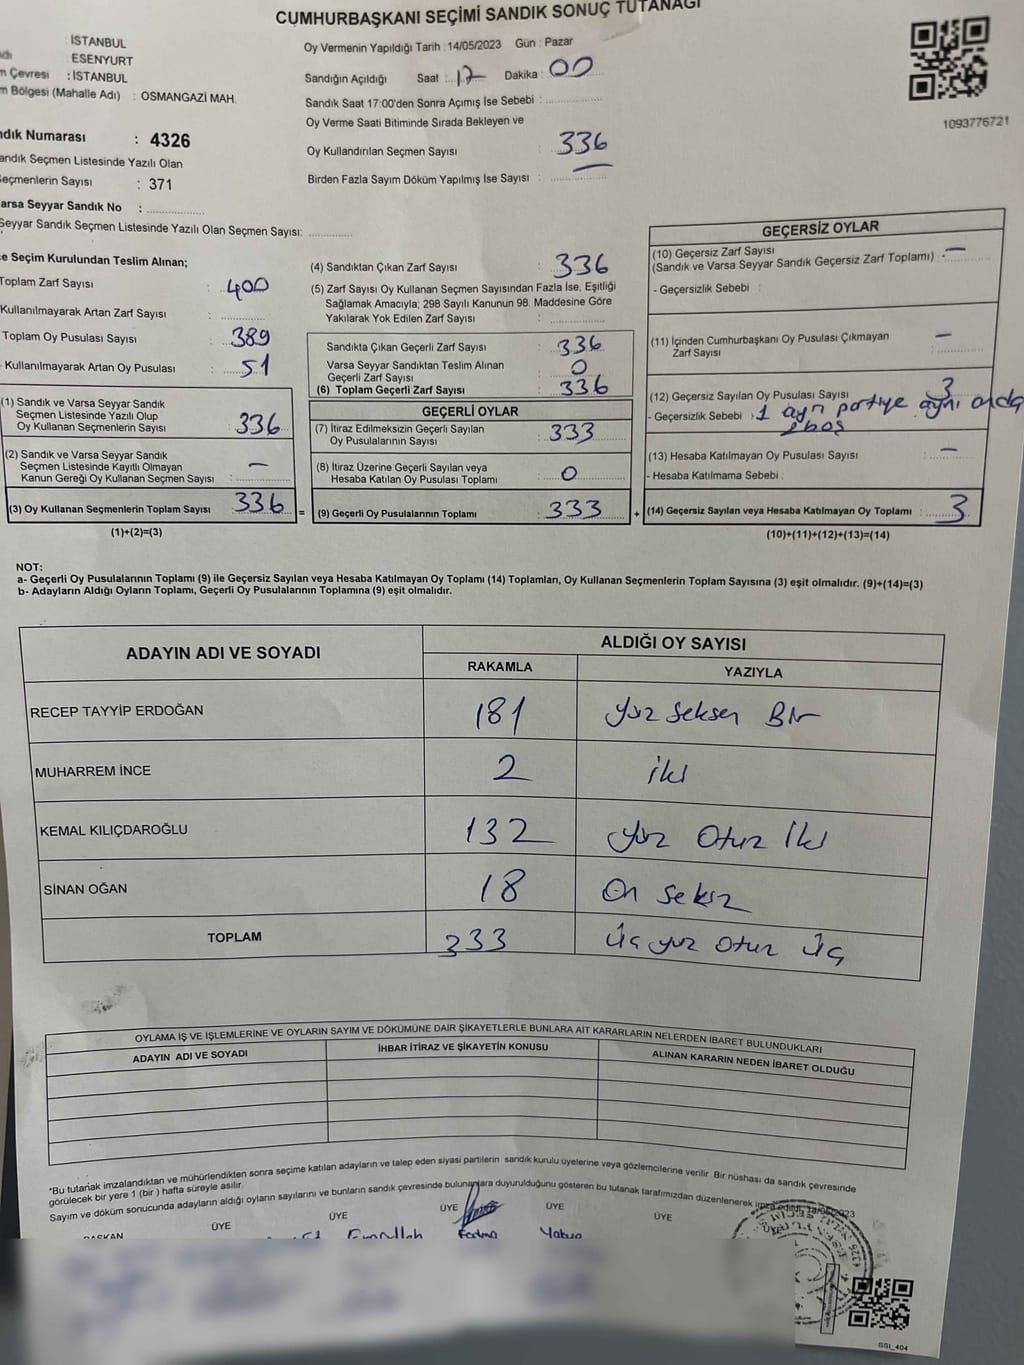 CUMHURBAŞKANI SEÇİMİ SANDIK SONUÇ TUTANAĞI
: İSTANBUL
: ESENYURT
Çevresi : İSTANBUL
Bölgesi (Mahalle Adı) : OSMANGAZİ MAH.
Numarası : 4326
Sandık Seçmen Listesinde Yazılı Olan
Seçmenlerin Sayısı : 371
Varsa Seyyar Sandık No : ..............
Seyyar Sandık Seçmen Listesinde Yazılı Olan Seçmen Sayısı: ..............
Oy Vermenin Yapıldığı Tarih : 14/05/2023 Gün : Pazar
Sandığın Açıldığı Saat : 17 Dakika : 00
Sandık Saat 17:00'den Sonra Açımış İse Sebebi : ..............
Oy Verme Saati Bitiminde Sırada Bekleyen ve
Oy Kullandırılan Seçmen Sayısı : 336
Birden Fazla Sayım Döküm Yapılmış İse Sayısı : ..............
1093776721
Seçim Kurulundan Teslim Alınan;
Toplam Zarf Sayısı : 400
Kullanılmayarak Artan Zarf Sayısı : ..............
Toplam Oy Pusulası Sayısı : 389
Kullanılmayarak Artan Oy Pusulası : 51
(1) Sandık ve Varsa Seyyar Sandık
Seçmen Listesinde Yazılı Olup
Oy Kullanan Seçmenlerin Sayısı : 336
(2) Sandık ve Varsa Seyyar Sandık
Seçmen Listesinde Kayıtlı Olmayan
Kanun Gereği Oy Kullanan Seçmen Sayısı : –
(3) Oy Kullanan Seçmenlerin Toplam Sayısı : 336 =
(1)+(2)=(3)
(4) Sandıktan Çıkan Zarf Sayısı : 336
(5) Zarf Sayısı Oy Kullanan Seçmen Sayısından Fazla İse, Eşitliği
Sağlamak Amacıyla; 298 Sayılı Kanunun 98. Maddesine Göre
Yakılarak Yok Edilen Zarf Sayısı : ..............
Sandıkta Çıkan Geçerli Zarf Sayısı : 336
Varsa Seyyar Sandıktan Teslim Alınan
Geçerli Zarf Sayısı : 0
(6) Toplam Geçerli Zarf Sayısı : 336
GEÇERLİ OYLAR
(7) İtiraz Edilmeksizin Geçerli Sayılan
Oy Pusulalarının Sayısı : 333
(8) İtiraz Üzerine Geçerli Sayılan veya
Hesaba Katılan Oy Pusulası Toplamı : 0
(9) Geçerli Oy Pusulalarının Toplamı : 333 +
GEÇERSİZ OYLAR
(10) Geçersiz Zarf Sayısı
(Sandık ve Varsa Seyyar Sandık Geçersiz Zarf Toplamı) : –
- Geçersizlik Sebebi :
(11) İçinden Cumhurbaşkanı Oy Pusulası Çıkmayan
Zarf Sayısı : –
(12) Geçersiz Sayılan Oy Pusulası Sayısı : 3
- Geçersizlik Sebebi : 1 ayrı partiye aynı anda
2 boş
(13) Hesaba Katılmayan Oy Pusulası Sayısı : –
- Hesaba Katılmama Sebebi :
(14) Geçersiz Sayılan veya Hesaba Katılmayan Oy Toplamı : 3
(10)+(11)+(12)+(13)=(14)
NOT:
a- Geçerli Oy Pusulalarının Toplamı (9) ile Geçersiz Sayılan veya Hesaba Katılmayan Oy Toplamı (14) Toplamları, Oy Kullanan Seçmenlerin Toplam Sayısına (3) eşit olmalıdır. (9)+(14)=(3)
b- Adayların Aldığı Oyların Toplamı, Geçerli Oy Pusulalarının Toplamına (9) eşit olmalıdır.
ADAYIN ADI VE SOYADI ALDIĞI OY SAYISI
RAKAMLA YAZIYLA
RECEP TAYYİP ERDOĞAN 181 Yüz Seksen Bir
MUHARREM İNCE 2 iki
KEMAL KILIÇDAROĞLU 132 Yüz Otuz İki
SİNAN OĞAN 18 On Sekiz
TOPLAM 333 Üç yüz Otuz Üç
OYLAMA İŞ VE İŞLEMLERİNE VE OYLARIN SAYIM VE DÖKÜMÜNE DAİR ŞİKAYETLERLE BUNLARA AİT KARARLARIN NELERDEN İBARET BULUNDUKLARI
ADAYIN ADI VE SOYADI İHBAR İTİRAZ VE ŞİKAYETİN KONUSU ALINAN KARARIN NEDEN İBARET OLDUĞU
*Bu tutanak imzalandıktan ve mühürlendikten sonra seçime katılan adayların ve talep eden siyasi partilerin sandık kurulu üyelerine veya gözlemcilerine verilir. Bir nüshası da sandık çevresinde
görülecek bir yere 1 (bir ) hafta süreyle asılır.
Sayım ve döküm sonucunda adayların aldığı oyların sayılarını ve bunların sandık çevresinde bulunanlara duyurulduğunu gösteren bu tutanak tarafımızdan düzenlenerek imza edildi. 14/05/2023
BAŞKAN ÜYE ÜYE ÜYE ÜYE ÜYE
Emrullah Fatma Yakup
SSI_404